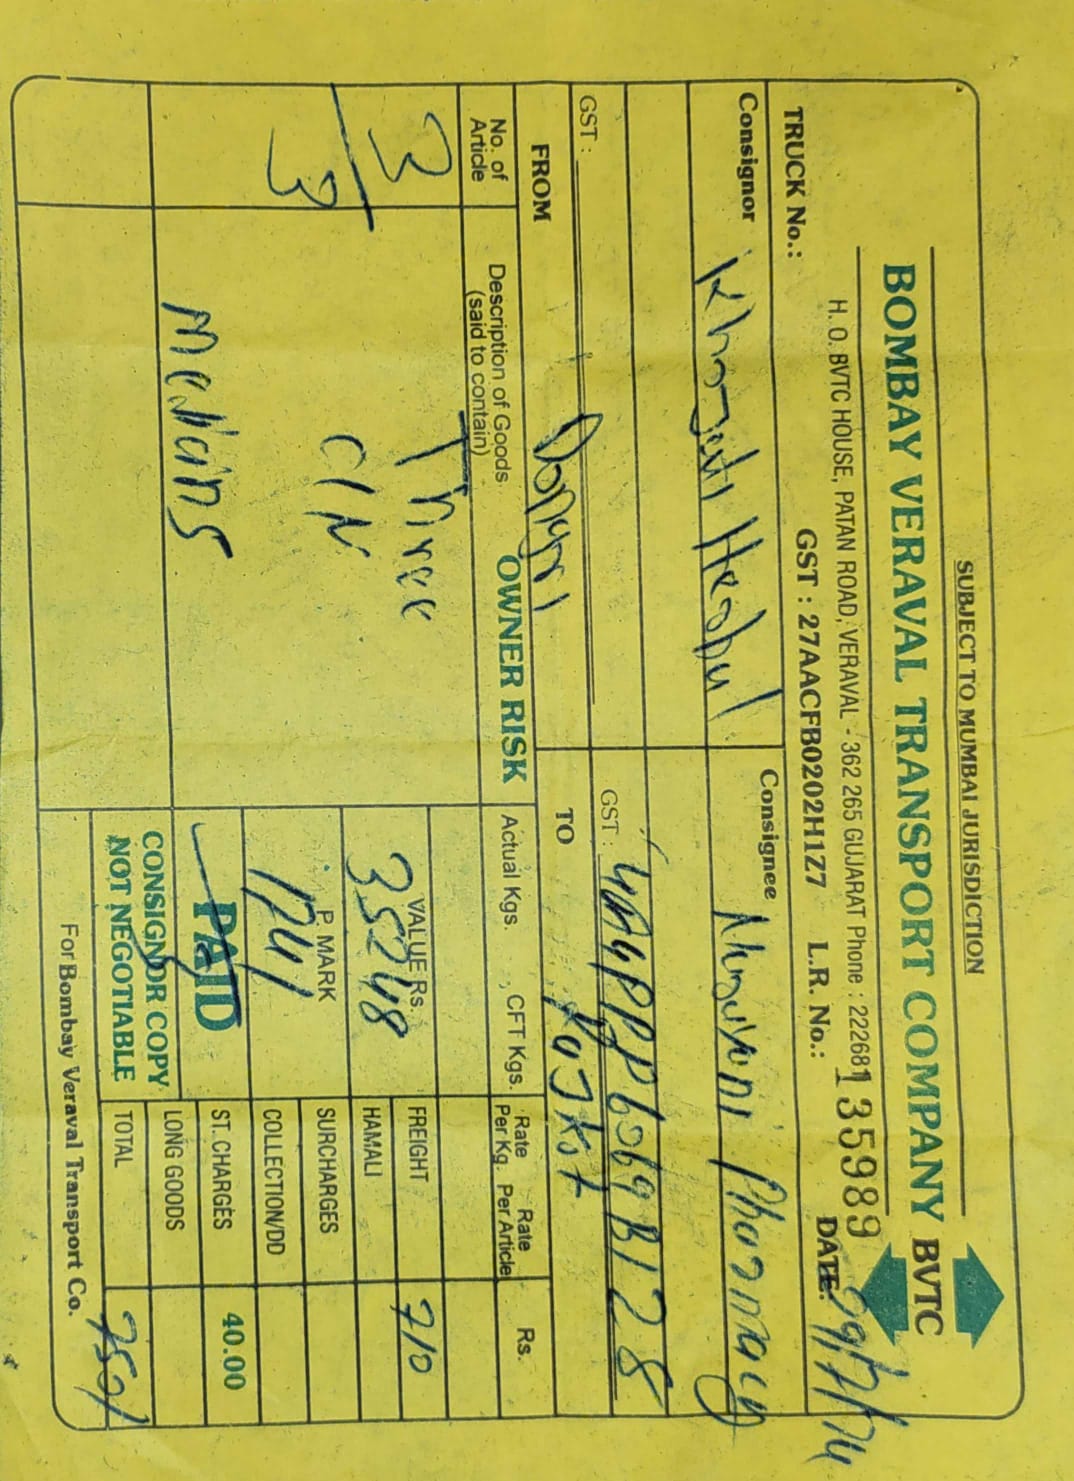 SUBJECT TO MUMBAI JURISDICTION
BOMBAY VERAVAL TRANSPORT COMPANY BVTC
H. O. BVTC HOUSE, PATAN ROAD, VERAVAL - 362 265 GUJARAT Phone : 222681
GST : 27AACFB0202H1Z7 L.R. No.: 135989
TRUCK No.: DATE:
Consignor Consignee
Pharmacy
GST : GST :
FROM Dongri TO
No. of Article
Description of Goods (said to contain)
OWNER RISK
Actual Kgs. CFT Kgs.
Rate Per Kg. Rate Per Article
Rs.
3/3
Three
C/N
VALUE Rs.
35248
P. MARK
1241
PAID
CONSIGNOR COPY
NOT NEGOTIABLE
FREIGHT 710
HAMALI
SURCHARGES
COLLECTION/DD
ST. CHARGES 40.00
LONG GOODS
TOTAL 750/
For Bombay Veraval Transport Co.